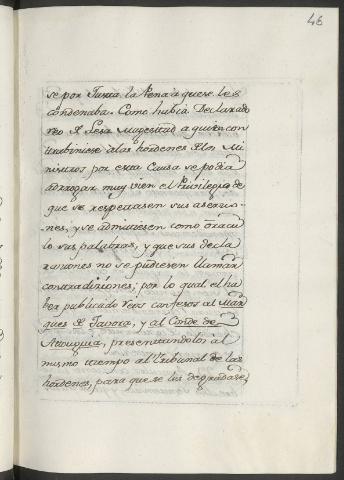 46
se por Justa la Pena à que se les
condenaba. Como habia Declarado
reo d. Lesa Magestad a quien con
trabiniese à las hordenes d. los Mi
nistros por esta Causa se podia
adrogar muy vien el Privilegio de
que se respetasen sus asercio-
nes, y se admitiesen como oracu
lo sus palabras, y que sus decla
raciones no se pudiesen llamar
contradiziones; por lo qual el ha
ber publicado reos confesos al Mar
ques d. Tavora, y al Conde de
Atouguia, presentandolos al
mismo tiempo al tribunal de las
hordenes, para que se les degradase,